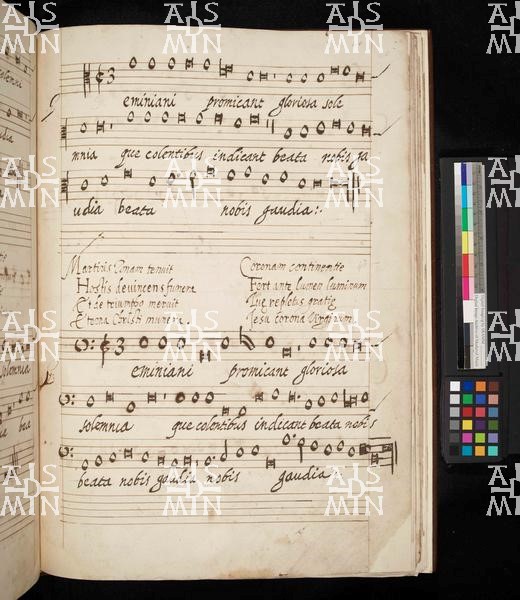 eminiani promicant gloriosa sole
mnia que colentibus indicant beata nobis ga
udia beata nobis gaudia:
Martiris tenuit
Hostis devincens funera
Et de triumpho meruit
Eterna Christi munera.
Coronam continentie
Fert ante lumen luminum
repletus gratie
Iesu corona Virginum.
3
eminiani promicant gloriosa
solemnia que colentibus indicant beata nobis
beata nobis gaudia nobis gaudia